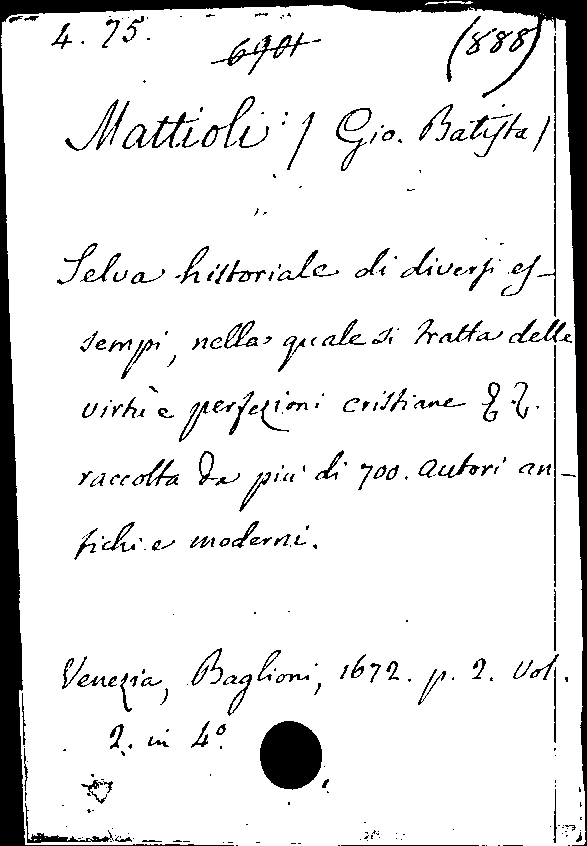 4. 75. 6901 (888)
Mattioli / Gio. Batista /
Selva historiale di diversi es-
sempi, nella quale si tratta delle
virtù e perfezioni cristiane &. &.
raccolta da più di 700. autori an-
tichi e moderni.
Venezia, Baglioni, 1672. p. 2. Vol.
2. in 4º